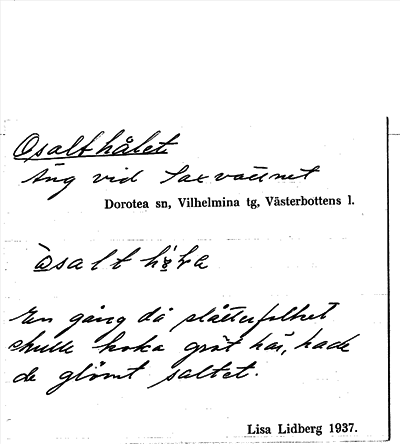 Osalthålet
Äng vid Saxvattnet
Dorotea sn, Vilhelmina tg, Västerbottens l.
òsalt
En gång då slåtterfolket
skulle koka gröt här, hade
de glömt saltet.
Lisa Lidberg 1937.